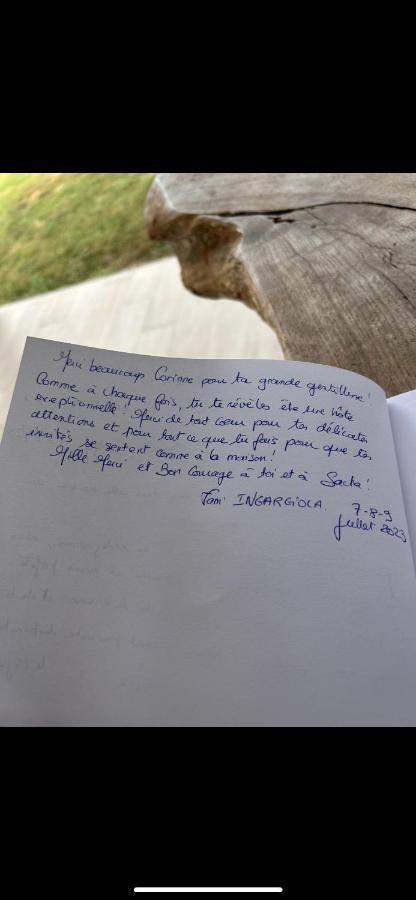 Merci beaucoup Corinne pour ta grande gentillesse!
Comme à chaque fois, tu te révèles être une hôte
exceptionnelle! Merci de tout coeur pour tes délicates
attentions et pour tout ce que tu fais pour que tes
invités se sentent comme à la maison!
Mille Merci et Bon Courage à toi et à Sacha!
Fami INGARGIOLA.
7-8-9
Juillet 2023